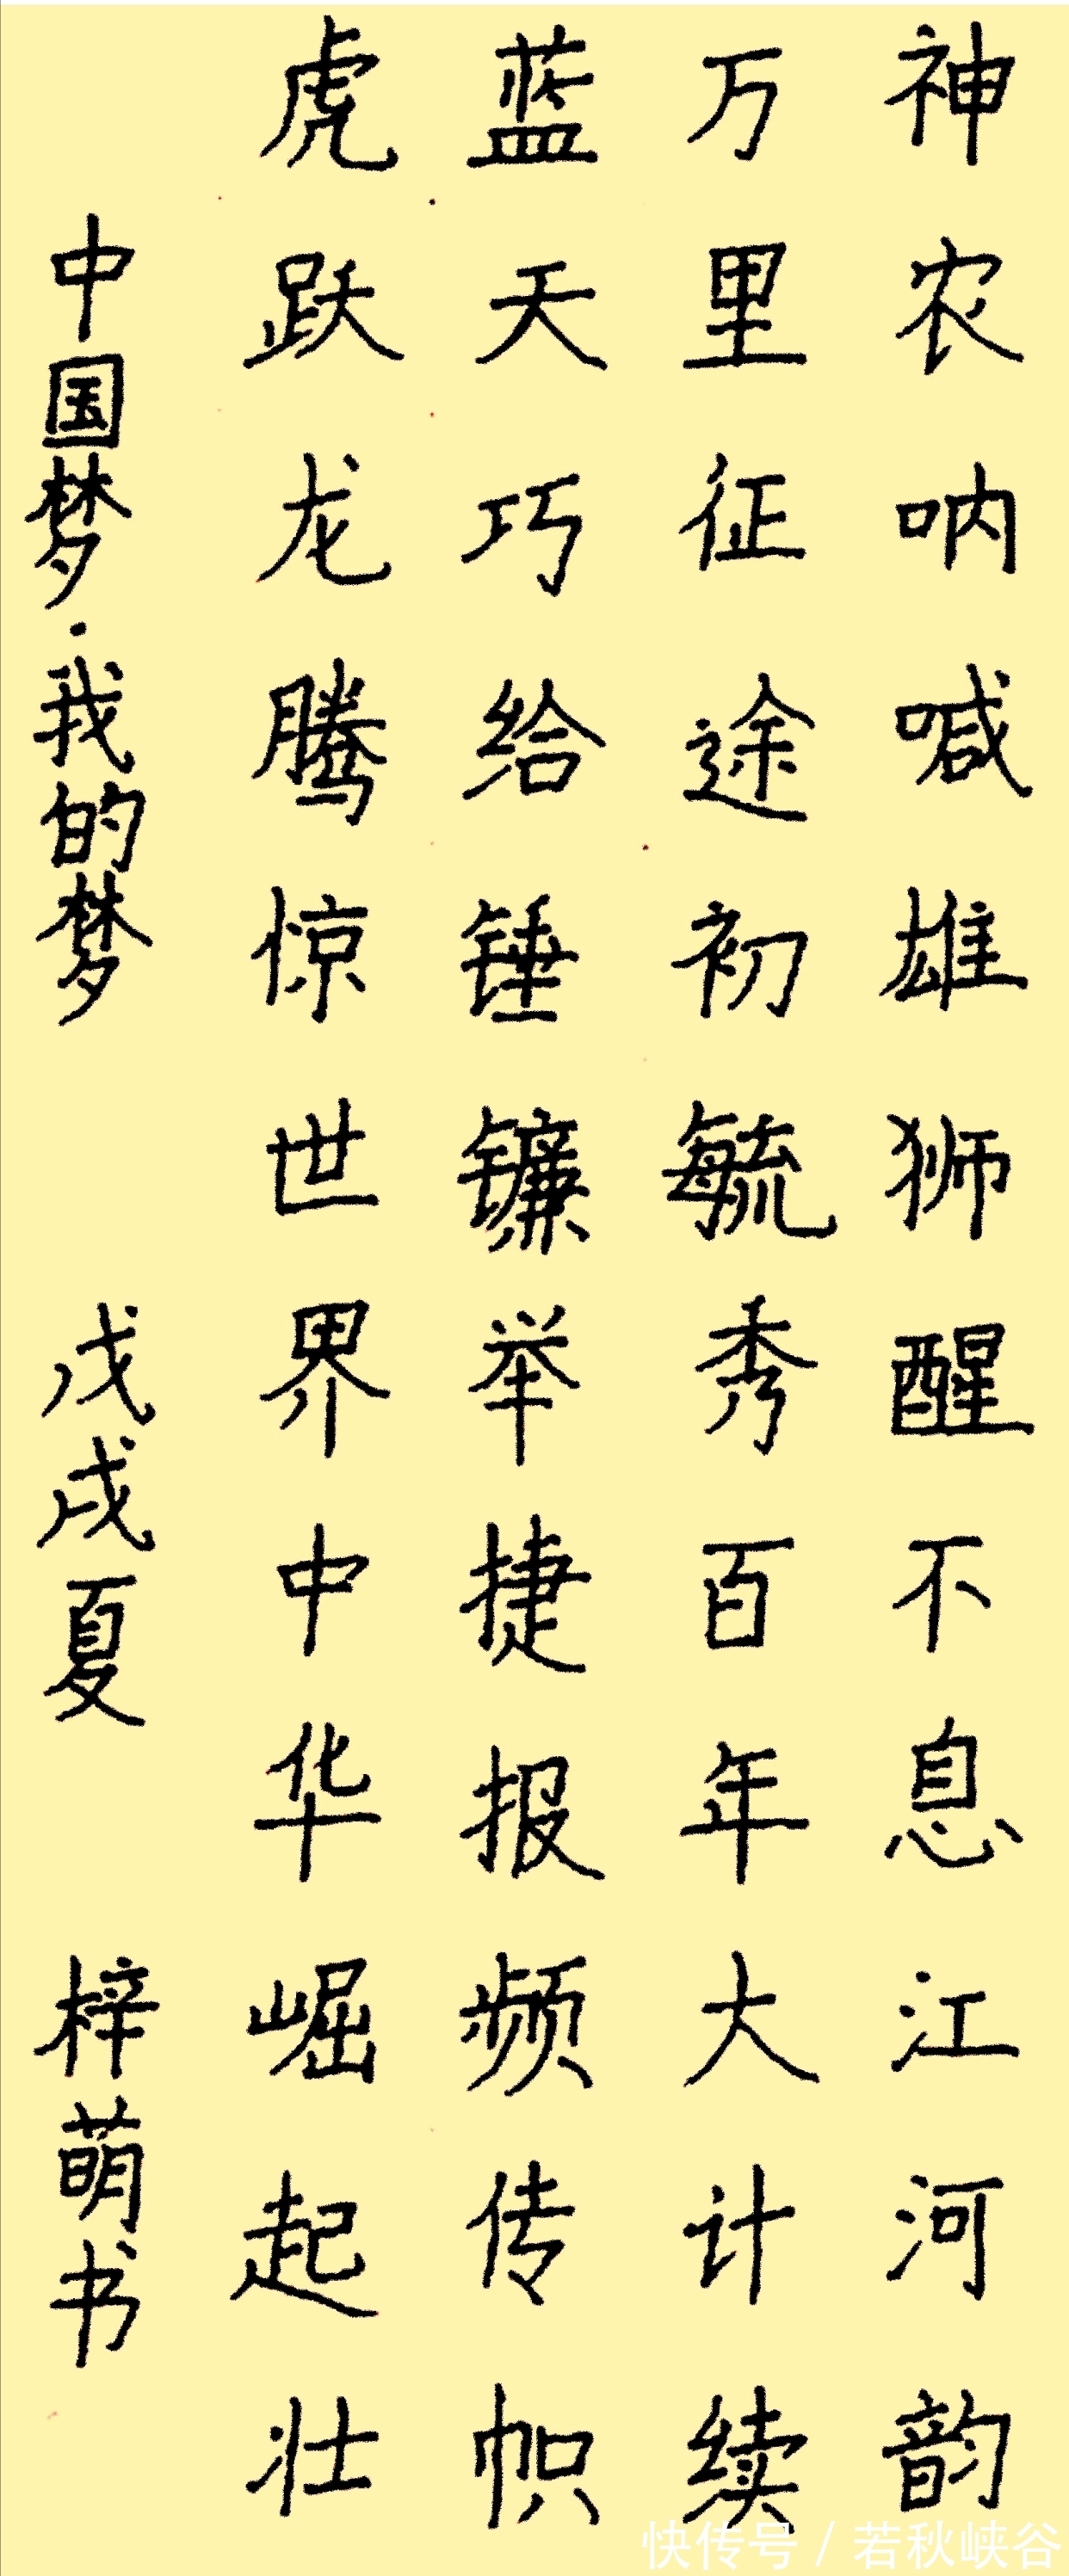 神农呐喊雄狮醒不息江河韵
万里征途初毓秀百年大计续
蓝天巧给锤镰举捷报频传帜
虎跃龙腾惊世界中华崛起壮
中国梦·我的梦 戊戌夏 梓萌书
快传号 / 若秋峡谷